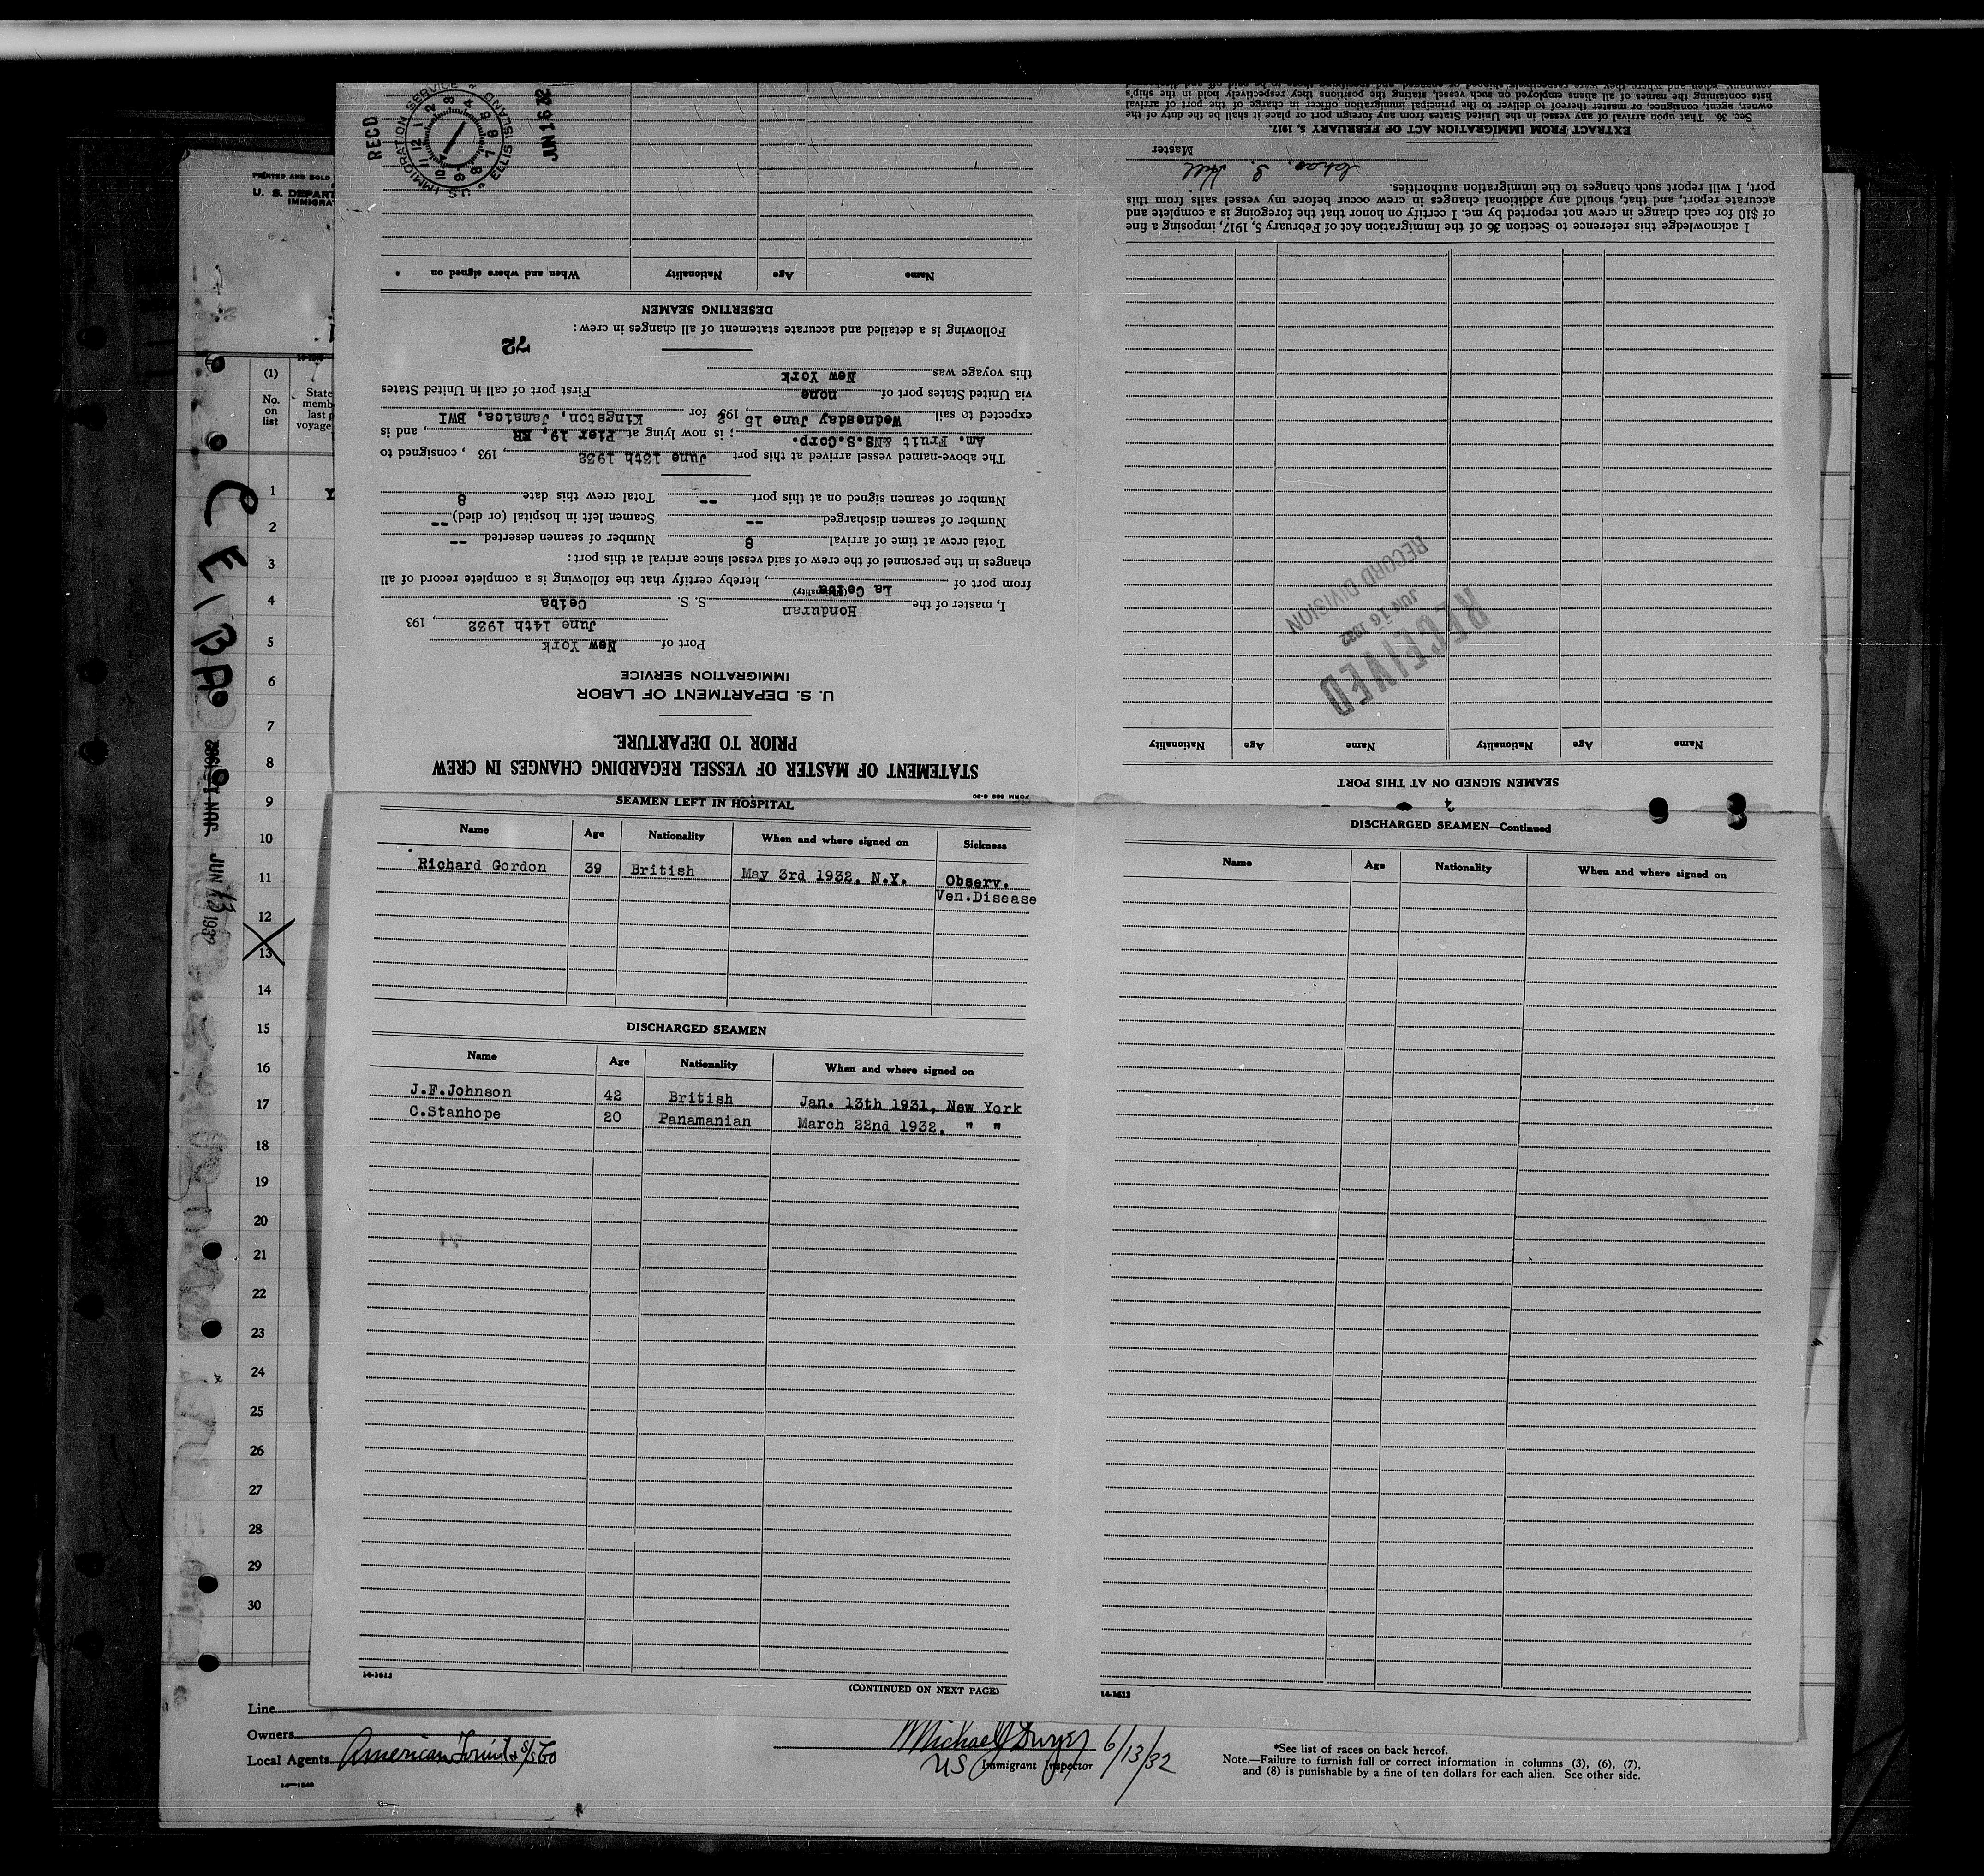 PRINTED AND SOLD
U. S. DEPART
IMMIGRA
(1)
No.
on
list
State
memb
last p
voyage
1
2
3
4
5
6
7
8
9
10
11
12
13
14
15
16
17
18
19
20
21
22
23
24
25
26
27
28
29
30
CEIBA
JUN 13 1932
Line
Owners
Local Agents American Fruit & S/S Co
STATEMENT OF MASTER OF VESSEL REGARDING CHANGES IN CREW
PRIOR TO DEPARTURE.
U. S. DEPARTMENT OF LABOR
IMMIGRATION SERVICE
Port of New York
June 14th 1932, 193
I, master of the Honduran S. S. Ceiba
(Nationality)
from port of La Ceiba, hereby certify that the following is a complete record of all
changes in the personnel of the crew of said vessel since arrival at this port:
Total crew at time of arrival 8 Number of seamen deserted --
Number of seamen discharged -- Seamen left in hospital (or died) --
Number of seamen signed on at this port -- Total crew this date 8
The above-named vessel arrived at this port June 13th 1932, 193 , consigned to
Am. Fruit &NS.S.Corp. ; is now lying at Pier 19, ER, and is
expected to sail Wednesday June 15, 193 2 for Kingston, Jamaica, BWI
via United States port of none First port of call in United States
this voyage was New York
72
Following is a detailed and accurate statement of all changes in crew:
DESERTING SEAMEN
Name Age Nationality When and where signed on
RECD
JUN 16 32
IMMIGRATION SERVICE
ELLIS ISLAND
U.S.
1 2 3 4 5 6 7 8 9 10 11 12
SEAMEN SIGNED ON AT THIS PORT
Name Age Nationality Name Age Nationality
RECEIVED
JUN 16 1932
RECORD DIVISION
I acknowledge this reference to Section 36 of the Immigration Act of February 5, 1917, imposing a fine
of $10 for each change in crew not reported by me. I certify on honor that the foregoing is a complete and
accurate report, and that, should any additional changes in crew occur before my vessel sails from this
port, I will report such changes to the immigration authorities.
Master
EXTRACT FROM IMMIGRATION ACT OF FEBRUARY 5, 1917.
Sec. 36. That upon arrival of any vessel in the United States from any foreign port or place it shall be the duty of the
owner, agent, consignee, or master thereof to deliver to the principal immigration officer in charge of the port of arrival
lists containing the names of all aliens employed on such vessel, stating the positions they respectively hold in the ship's
SEAMEN LEFT IN HOSPITAL
Name Age Nationality When and where signed on Sickness
Richard Gordon 39 British May 3rd 1932, N.Y. Observ.
Ven.Disease
DISCHARGED SEAMEN
Name Age Nationality When and where signed on
J.F.Johnson 42 British Jan. 13th 1931, New York
C.Stanhope 20 Panamanian March 22nd 1932, " "
14-1613
(CONTINUED ON NEXT PAGE)
DISCHARGED SEAMEN—Continued
Name Age Nationality When and where signed on
14-1613
Michael J Dwyer 6/13/32
US Immigrant Inspector
*See list of races on back hereof.
Note.—Failure to furnish full or correct information in columns (3), (6), (7),
and (8) is punishable by a fine of ten dollars for each alien. See other side.